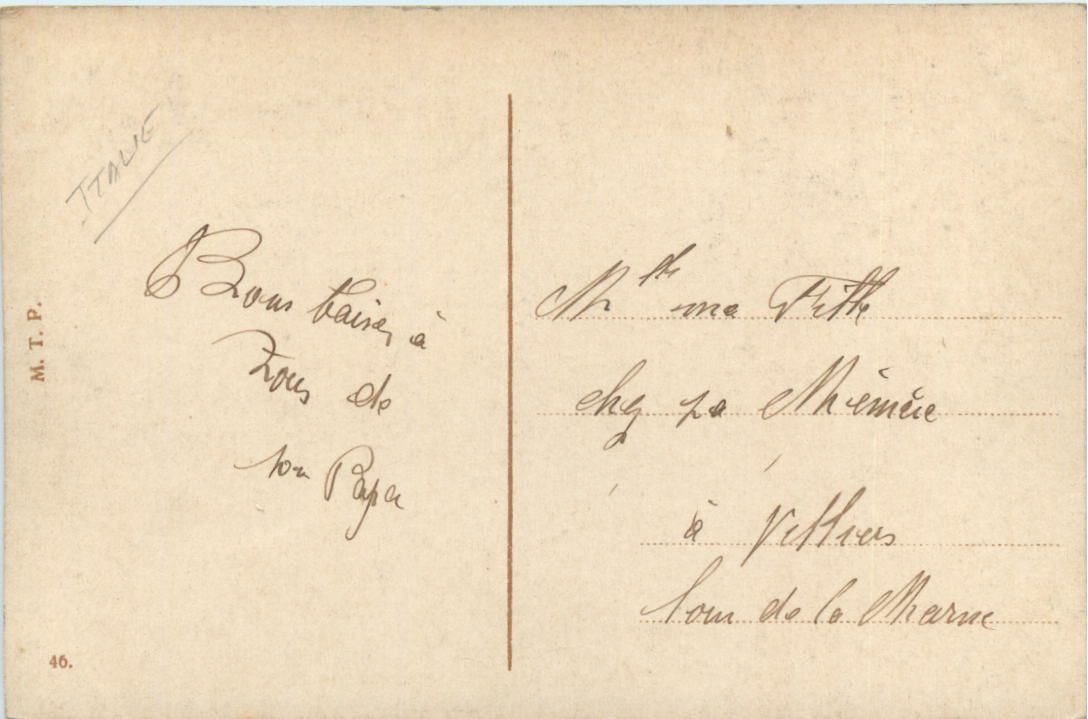 ITALIE
Bons baisez à
Tous de
ton Papa
M. T. P.
46.
Mlle ma Fille
chez sa Mémère
à Villiers
de la Marne